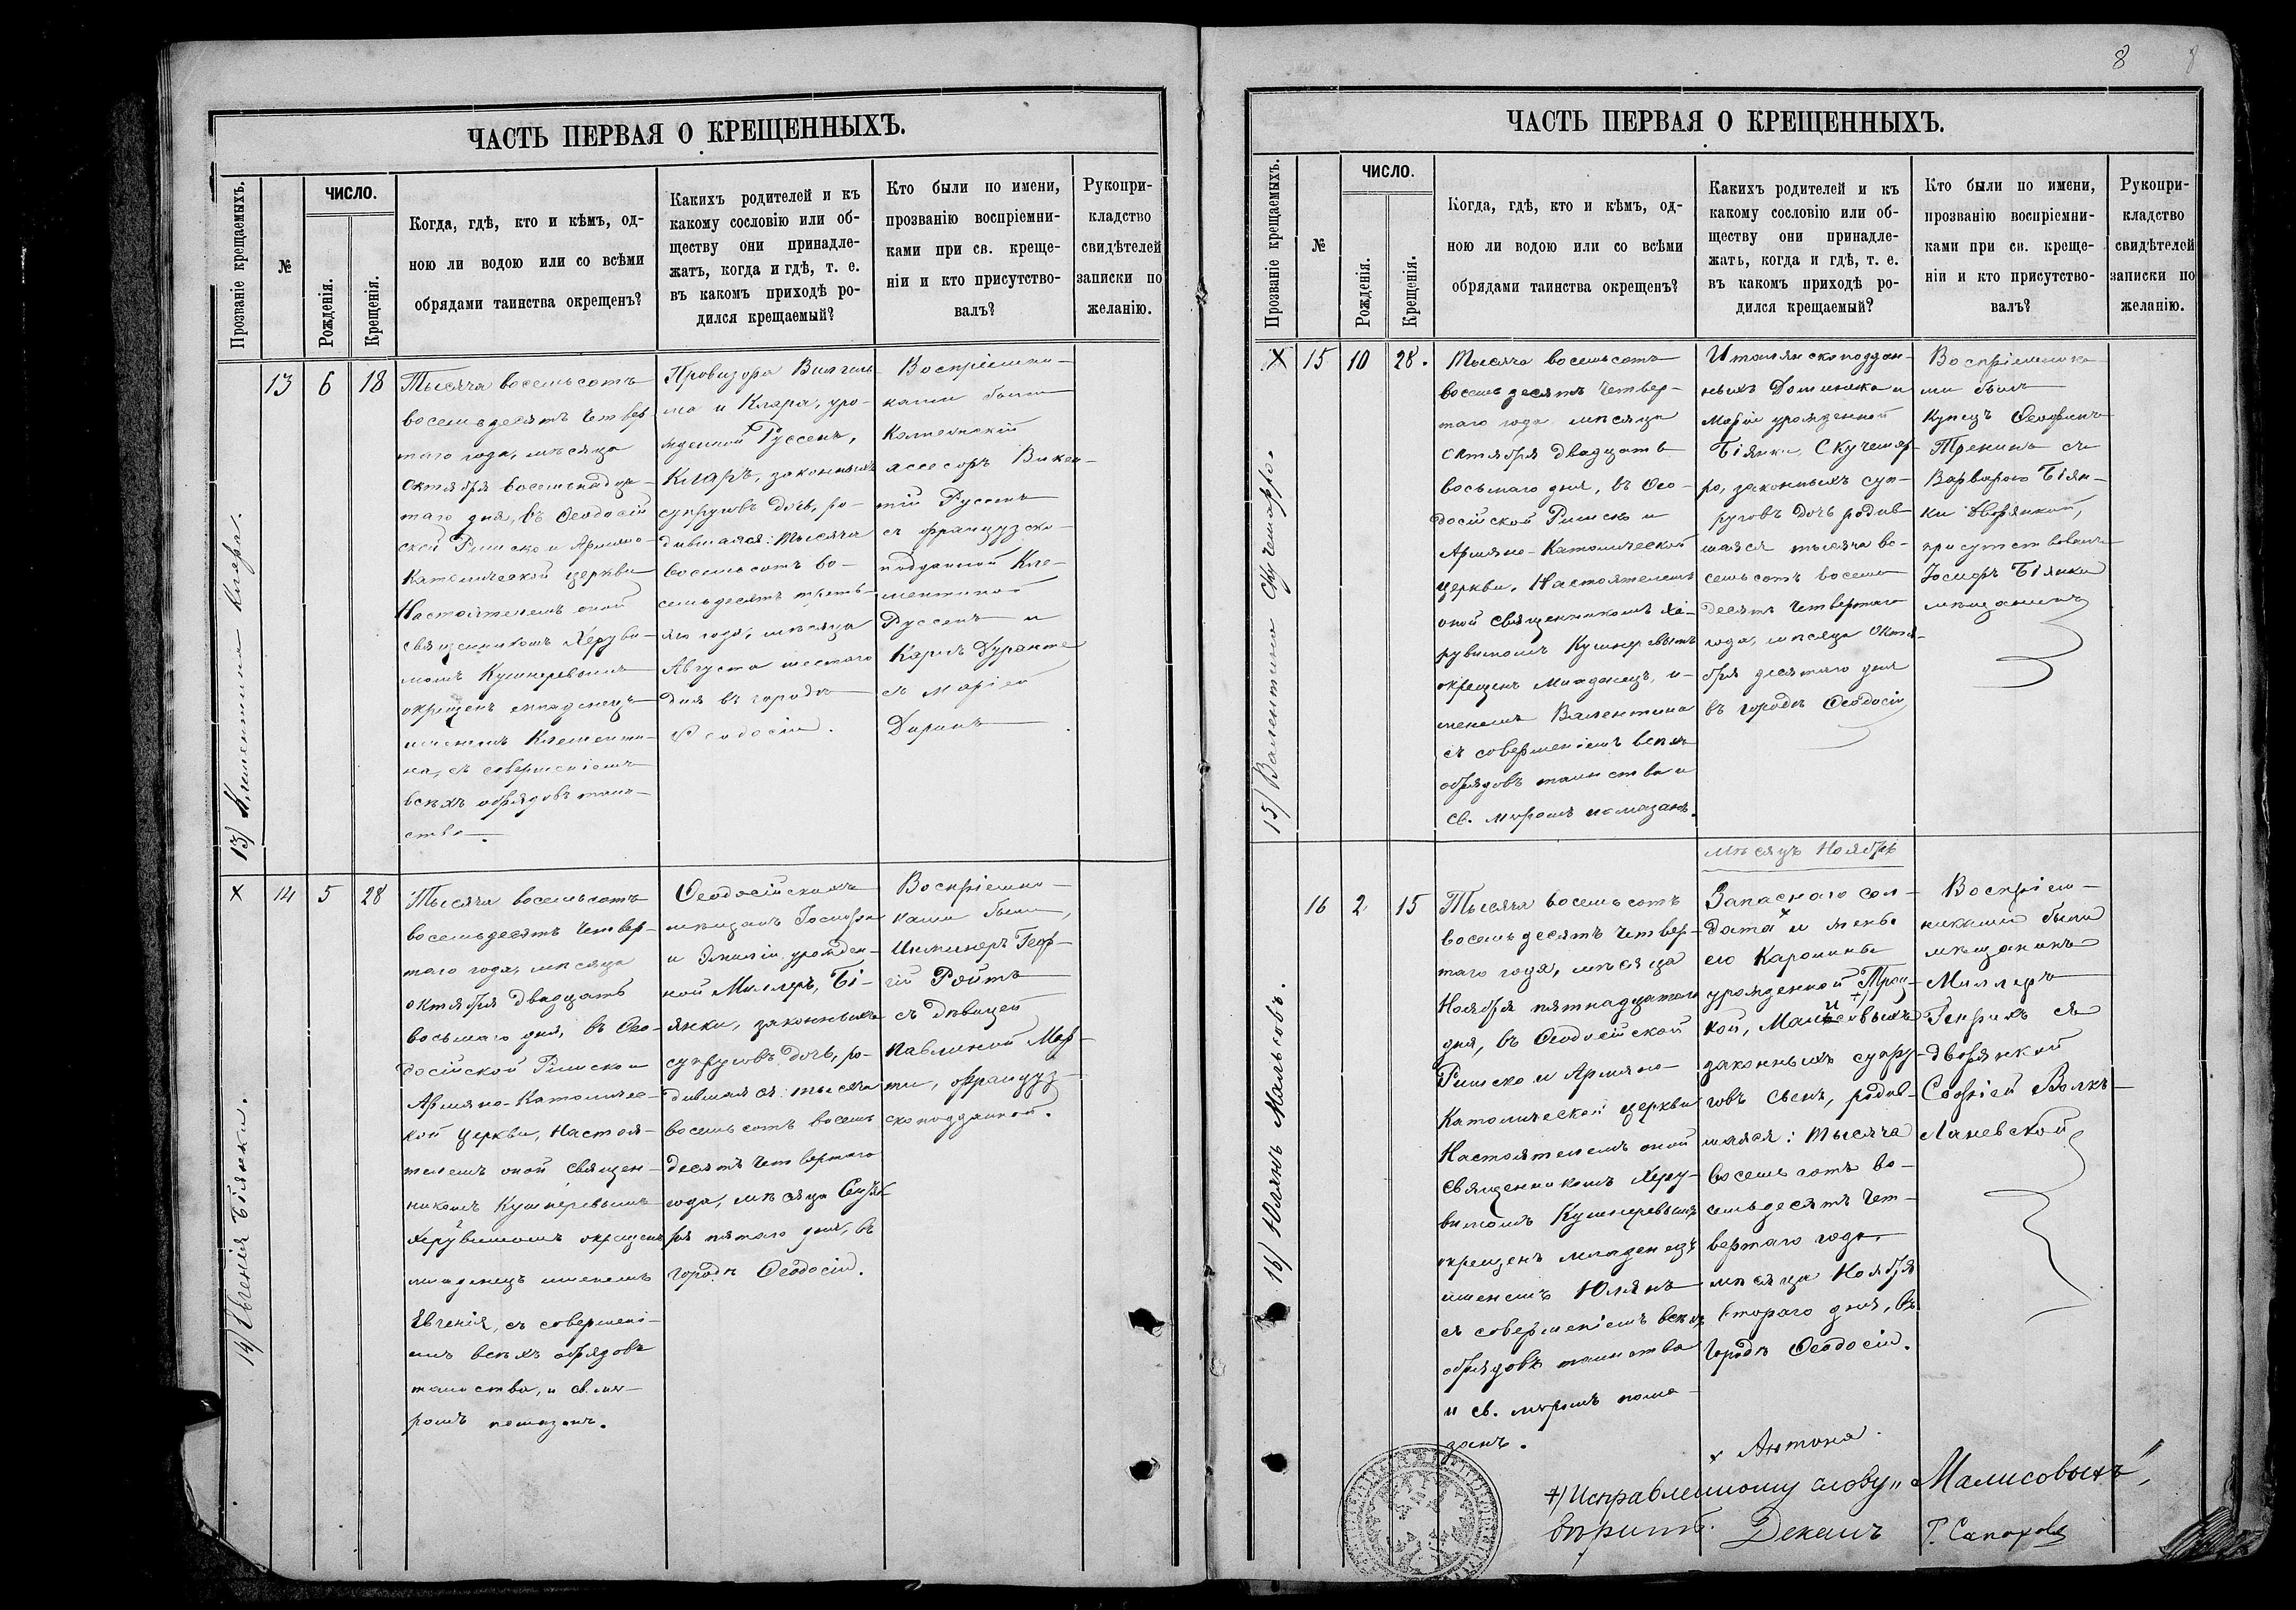 ЧАСТЬ ПЕРВАЯ О КРЕЩЕННЫХЪ.
Прозваніе крещаемыхъ.
№
ЧИСЛО.
Рожденія.
Крещенія.
Когда, гдѣ, кто и кѣмъ, од-
ною ли водою или со всѣми
обрядами таинства окрещенъ?
Какихъ родителей и къ
какому сословію или об-
ществу они принадле-
жатъ, когда и гдѣ, т. е.
въ какомъ приходѣ ро-
дился крещаемый?
Кто были по имени,
прозванію воспріемни-
ками при св. креще-
ніи и кто присутство-
валъ?
Рукопри-
кладство
свидѣтелей
записки по
желанію.
13) Клементина Кларъ.
13
6
18
Тысяча восемьсотъ
восемьдесятъ четвер
таго года, мѣсяца
Октября восемнадца-
таго дня, въ Ѳеодосій
ской Римско и Армяно-
Католической церкви
Настоятелемъ оной
священникомъ Херуви-
момъ Кушнеревымъ
окрещенъ младенецъ
именемъ Клементи-
на, съ совершеніемъ
всѣхъ обрядовъ таин-
ства.
Провизора Вильгель
ма и Клара, уро-
жденной Руссенъ,
Кларъ, законныхъ
супруговъ дочь, ро-
дившаяся: тысяча
восемьсотъ во-
семьдесятъ треть-
яго года, мѣсяца
Августа шестаго
дня въ городѣ
Ѳеодосіи.
Воспріемни-
ками были
Колежскій
ассесоръ Викен-
тій Руссенъ
съ французско-
подданной Кле-
ментиной
Руссенъ и
Карлъ Дуранте
съ Маріей
Дуранъ
14) Евгенія Біянки.
×
14
5
28
Тысяча восемьсотъ
восемьдесятъ четвер-
таго года, мѣсяца
октября двадцать
восьмаго дня, въ Ѳео-
досійской Римско и
Армяно-Католичес-
кой церкви, Настоя-
телемъ оной священ-
никомъ Кушнеревымъ
Херувимомъ окрещенъ
младенецъ именемъ
Евгенія, съ совершені-
емъ всѣхъ обрядовъ
таинства, и св. мѵ-
ромъ помазанъ.
Ѳеодосійскихъ
мѣщанъ Іосифа
и Эмиліи, урожден-
ной Миллеръ, Бі-
янки, законныхъ
супруговъ дочь, ро-
дившаяся: тысяча
восемьсотъ восемь
десятъ четвертаго
года, мѣсяца Сентя
бря пятаго дня, въ
городѣ Ѳеодосіи.
Воспріемни-
ками были,
Инженеръ Геор-
гій Ройтъ
съ дѣвицей
Павлиной Мар-
ти, француз-
скоподданной.
8
ЧАСТЬ ПЕРВАЯ О КРЕЩЕННЫХЪ.
Прозваніе крещаемыхъ.
№
ЧИСЛО.
Рожденія.
Крещенія.
Когда, гдѣ, кто и кѣмъ, од-
ною ли водою или со всѣми
обрядами таинства окрещенъ?
Какихъ родителей и къ
какому сословію или об-
ществу они принадле-
жатъ, когда и гдѣ, т. е.
въ какомъ приходѣ ро-
дился крещаемый?
Кто были по имени,
прозванію воспріемни-
ками при св. креще-
ніи и кто присутство-
валъ?
Рукопри-
кладство
свидѣтелей
записки по
желанію.
15) Валентина Скучемарро.
×
15
10
28.
Тысяча восемьсотъ
восемьдесятъ четвер-
таго года мѣсяца
Октября двадцать
восьмаго дня, въ Ѳео-
досійской Римско и
Армяно-Католической
церкви, Настоятелемъ
оной священникомъ Хе-
рувимомъ Кушнеревымъ
окрещенъ младенецъ, и-
менемъ Валентина
съ совершеніемъ всѣхъ
обрядовъ таинства и
св. мѵромъ помазанъ.
Итальянскоподдан-
ныхъ Доминика и
Маріи урожденной
Біянки, Скучемар-
ро, законныхъ суп-
руговъ дочь родив
шаяся тысяча во-
семьсотъ восемь
десятъ четвертаго
года, мѣсяца Октя-
бря десятаго дня
въ городѣ Ѳеодосіи
Воспріемника
ми были
Купецъ Ѳеофанъ
Тренинъ съ
Варварою Біян-
ки дворянкой,
присутствовалъ
Іосифъ Біянки
мѣщанинъ
мѣсяцъ Ноябрь
16) Юліянъ Мальсовъ.
16
2
15
Тысяча восемьсотъ
восемьдесятъ четвер-
таго года, мѣсяца
Ноября пятнадцатаго
дня, въ Ѳеодосійской
Римско и Армяно-
Католической церкви
Настоятелемъ оной
священникомъ Херу-
вимомъ Кушнеревымъ
окрещенъ младенецъ
именемъ Юліянъ
съ совершеніемъ всѣхъ
обрядовъ таинства
и св. мѵромъ пома-
занъ.
Запаснаго сол-
дата × и жены
его Каролины
урожденной Троц-
кой, Малисовыхъ +)
законныхъ супру-
говъ сынъ, родив-
шаяся: тысяча
восемьсотъ во-
семьдесятъ чет-
вертаго года,
мѣсяца Ноября
втораго дня, въ
городѣ Ѳеодосіи.
Воспріем-
никами были
мѣщанинъ
Миллеръ
Генрихъ съ
дворянкой
Софіей Волкъ-
Ланевской
× Антона.
+) Исправленному слову „Малисовыхъ“
вѣрить. Деканъ Г. Сапоховъ